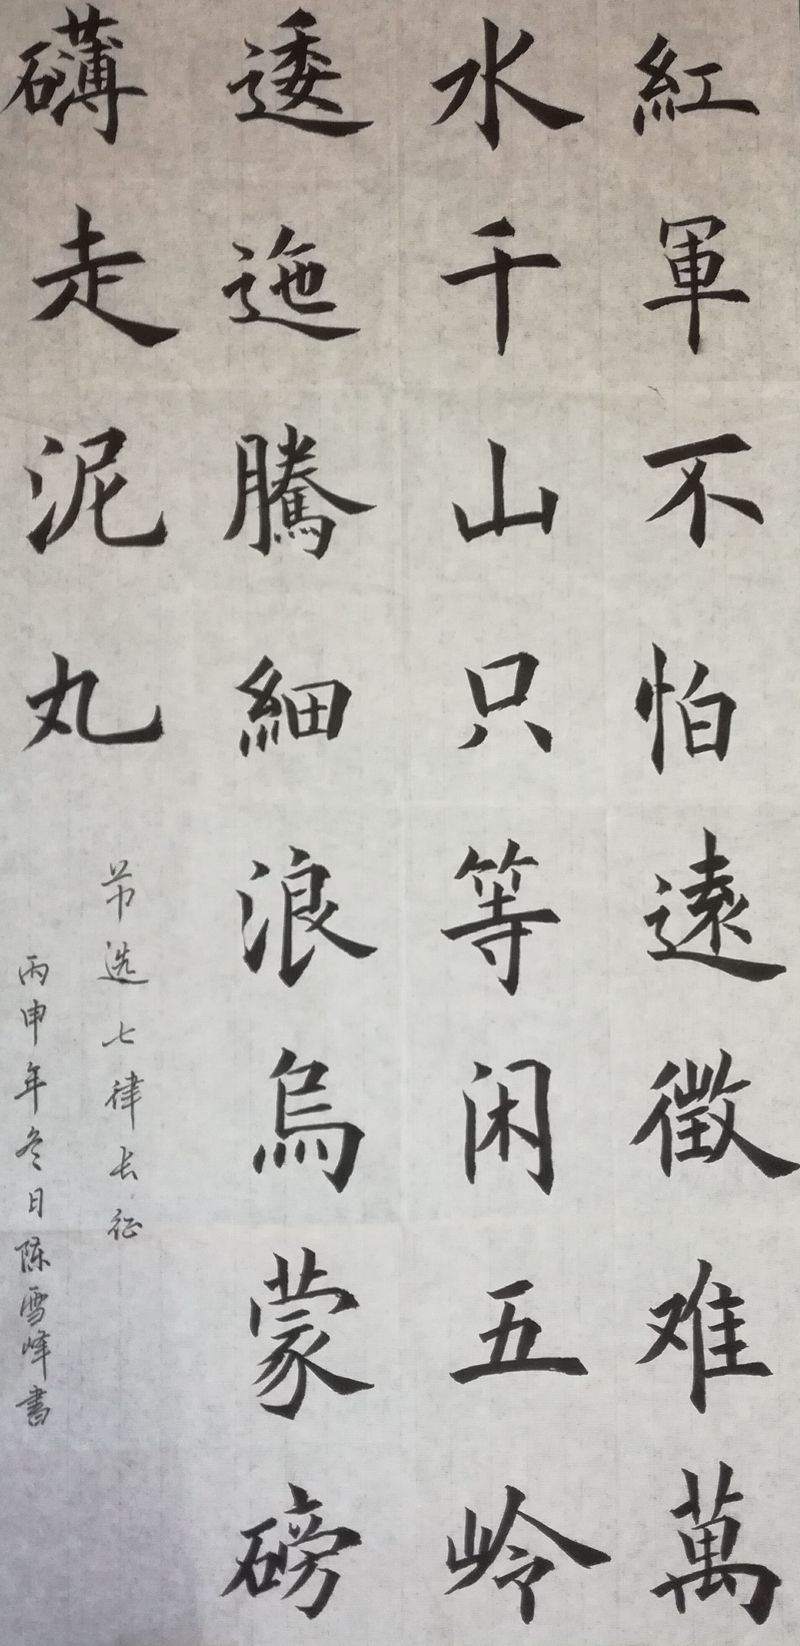 紅軍不怕遠徵难萬
水千山只等闲五岭
逶迤騰細浪烏蒙磅
礴走泥丸
节选七律长征
丙申年冬日陈雪峰书